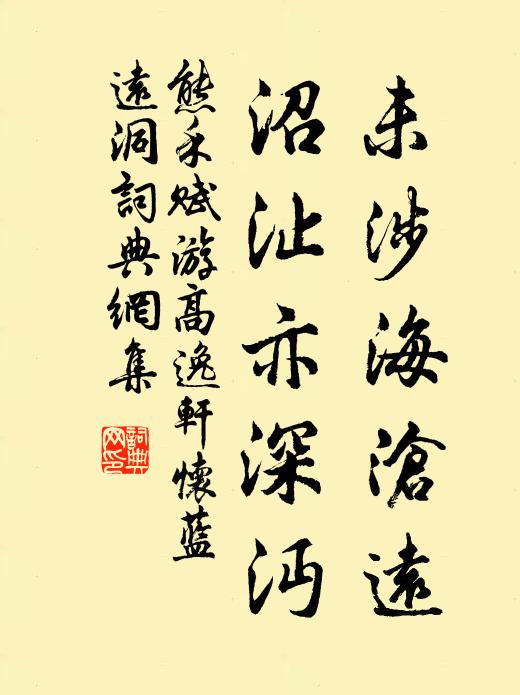 未涉海滄遠
沼沚亦深沔
熊禾赋游高逸軒懷藍
遠洞詞典網集
詞典
网印